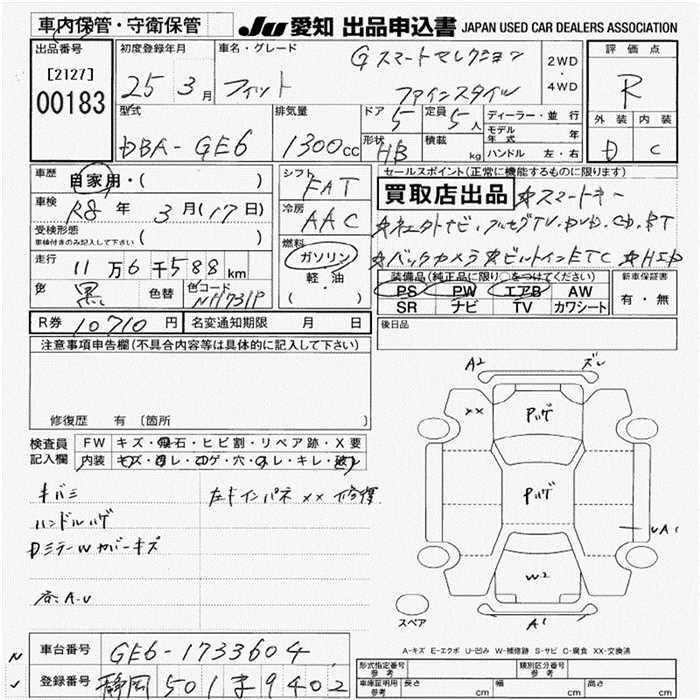 車内保管・守衛保管
JU 愛知 出品申込書 JAPAN USED CAR DEALERS ASSOCIATION
出品番号
[2127]
00183
初度登録年月
25 3月
車名・グレード
フィット
G スマートセレクション
ファインスタイル
2WD
・
4WD
評価点
R
外装 内装
D C
型式
DBA-GE6
排気量
1300cc
ドア
5
定員
5人
形状
HB
積載
kg
ディーラー・並行
モデル年式 年
ハンドル 左・右
車歴
自家用・( )
車検
R8 年 3月(17日)
受検形態
車検付きのみ記入して下さい ( )
走行
11万6千588km
色 黒 色替 色コード NH731P
シフト
FAT
冷房
AAC
燃料
ガソリン
軽・油
( )
セールスポイント(正常に機能するものに限ります)
買取店出品 ☆スマートキー
☆純正ナビ・フルセグTV・DVD・CD・BT
☆バックカメラ☆ビルトインETC ☆HID
装備品(純正品に限り○をつけてください)
PS PW エアB AW
SR ナビ TV カワシート
新車保証書
有・無
R券 10710円 名変通知期限 月 日
後日品
注意事項申告欄(不具合内容等は具体的に記入して下さい)
修復歴 有 〔箇所
検査員
記入欄
FW キズ・飛石・ヒビ割・リペア跡・X要
内装 キズ・汚レ・コゲ・穴・スレ・キレ・破レ
キバミ
ハンドルハゲ
Dミラー W カバーキズ
左ドインパネ ×× 修復
A-U
A2 ズレ
××
Pハゲ
Pハゲ
W2
UA1
A1
スペア
A-キズ E-エクボ U-凹み W-補修跡 S-サビ C-腐食 XX-交換済
車台番号 GE6-1733604
登録番号 静岡 501 ま 9402
形式指定番号
参考
類別区分番号
参考
車庫証明用
参考
長さ cm 幅 cm 高さ cm